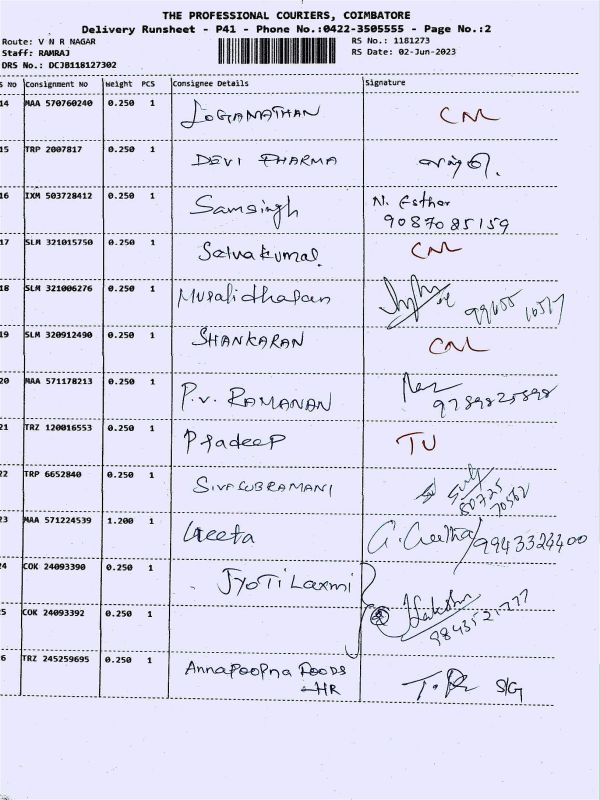 THE PROFESSIONAL COURIERS, COIMBATORE
Delivery Runsheet - P41 - Phone No.:0422-3505555 - Page No.:2
Route: V N R NAGAR RS No.: 1181273
Staff: RAMRAJ RS Date: 02-Jun-2023
DRS No.: DCJB118127302
S No Consignment No Weight PCS Consignee Details Signature
14 MAA 570760240 0.250 1 LOGANATHAN CNL
15 TRP 2007817 0.250 1 DEVI DHARMA
16 IXM 503728412 0.250 1 Samsingh N. Esther
9087085159
17 SLM 321015750 0.250 1 Selvakumar CNL
18 SLM 321006276 0.250 1 Muralidharan
19 SLM 320912490 0.250 1 SHANKARAN CNL
20 MAA 571178213 0.250 1 P.V. RAMANAN
9789825898
21 TRZ 120016553 0.250 1 Pradeep TU
22 TRP 6652840 0.250 1 SIVASUBRAMANI
80725
70562
23 MAA 571224539 1.200 1 Geeta G. Geetha/9943324400
24 COK 24093390 0.250 1 JYOTI Laxmi
25 COK 24093392 0.250 1
26 TRZ 245259695 0.250 1 Annapoorna FOODS
-HR S/G